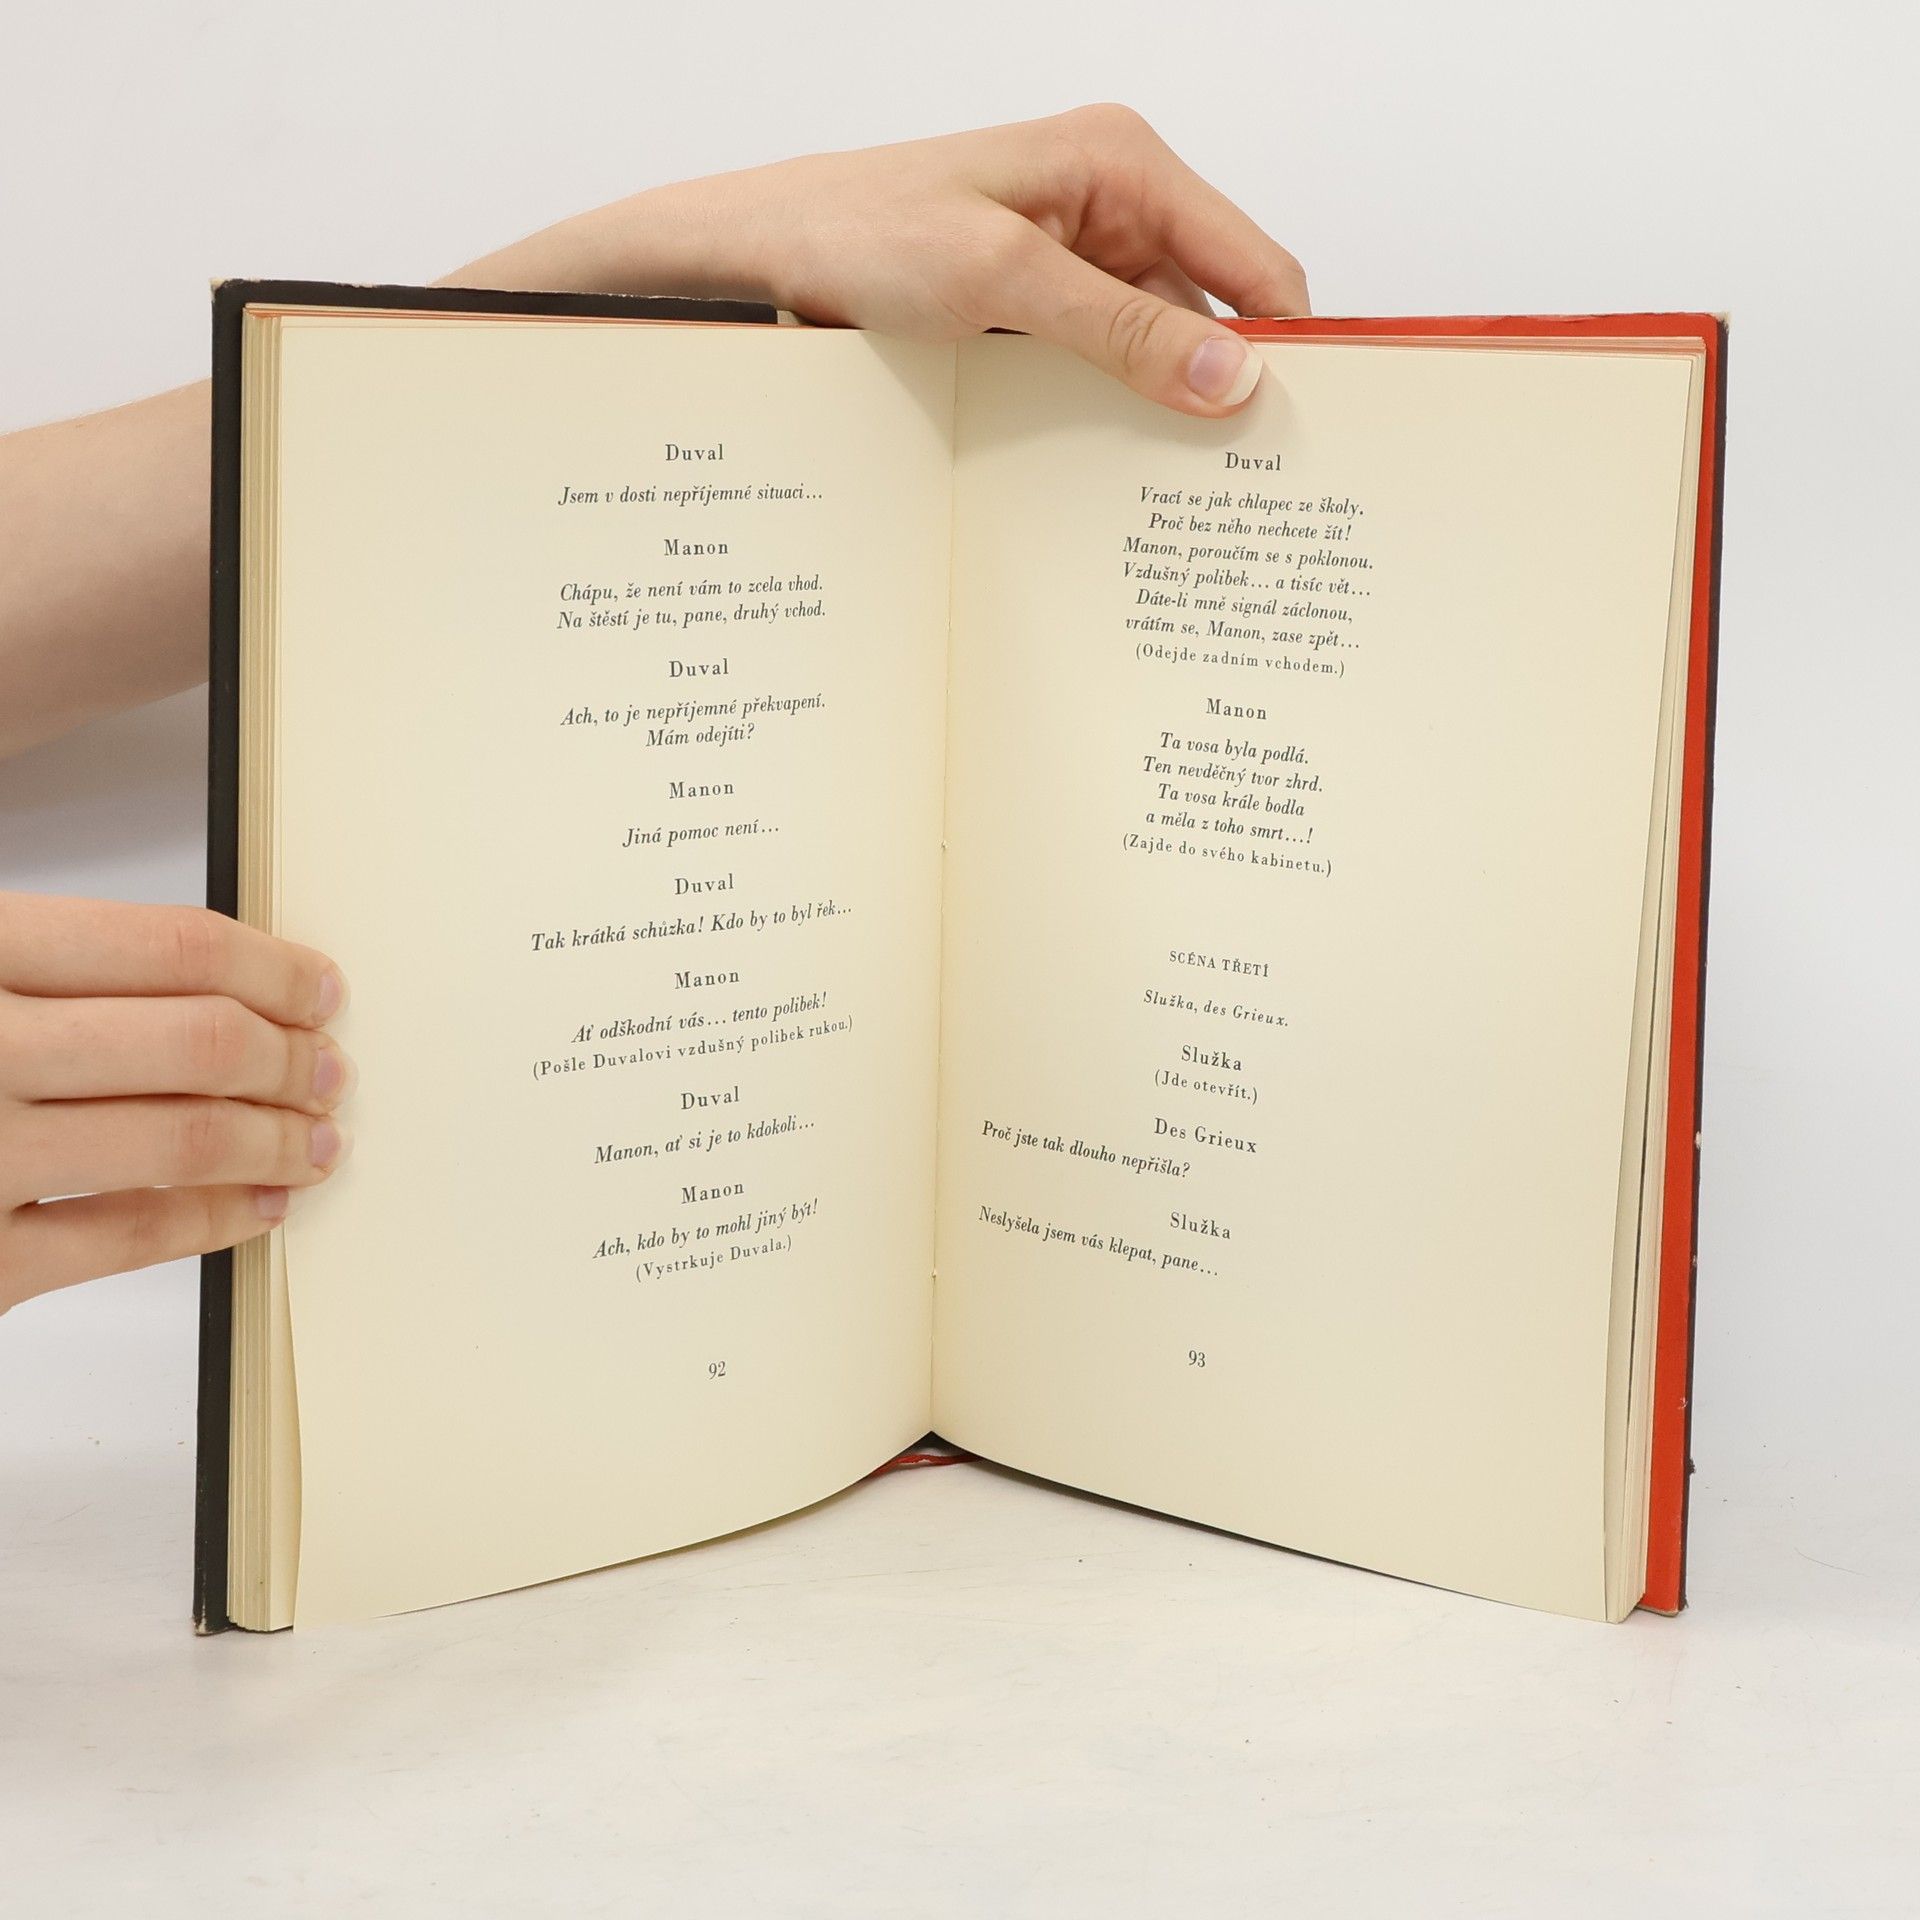 Duval
Jsem v dosti nepříjemné situaci...
Manon
Chápu, že není vám to zcela vhod.
Na štěstí je tu, pane, druhý vchod.
Duval
Ach, to je nepříjemné překvapení.
Mám odejíti?
Manon
Jiná pomoc není...
Duval
Tak krátká schůzka! Kdo by to byl řek...
Manon
Ať odškodní vás... tento polibek!
(Pošle Duvalovi vzdušný polibek rukou.)
Duval
Manon, ať si je to kdokoli...
Manon
Ach, kdo by to mohl jiný být!
(Vystrkuje Duvala.)
92
Duval
Vrací se jak chlapec ze školy.
Proč bez něho nechcete žít!
Manon, poroučím se s poklonou.
Vzdušný polibek... a tisíc vět...
Dáte-li mně signál záclonou,
vrátím se, Manon, zase zpět...
(Odejde zadním vchodem.)
Manon
Ta vosa byla podlá.
Ten nevděčný tvor zhrd.
Ta vosa krále bodla
a měla z toho smrt...!
(Zajde do svého kabinetu.)
SCÉNA TŘETÍ
Služka, des Grieux.
Služka
(Jde otevřít.)
Des Grieux
Proč jste tak dlouho nepřišla?
Služka
Neslyšela jsem vás klepat, pane...
93